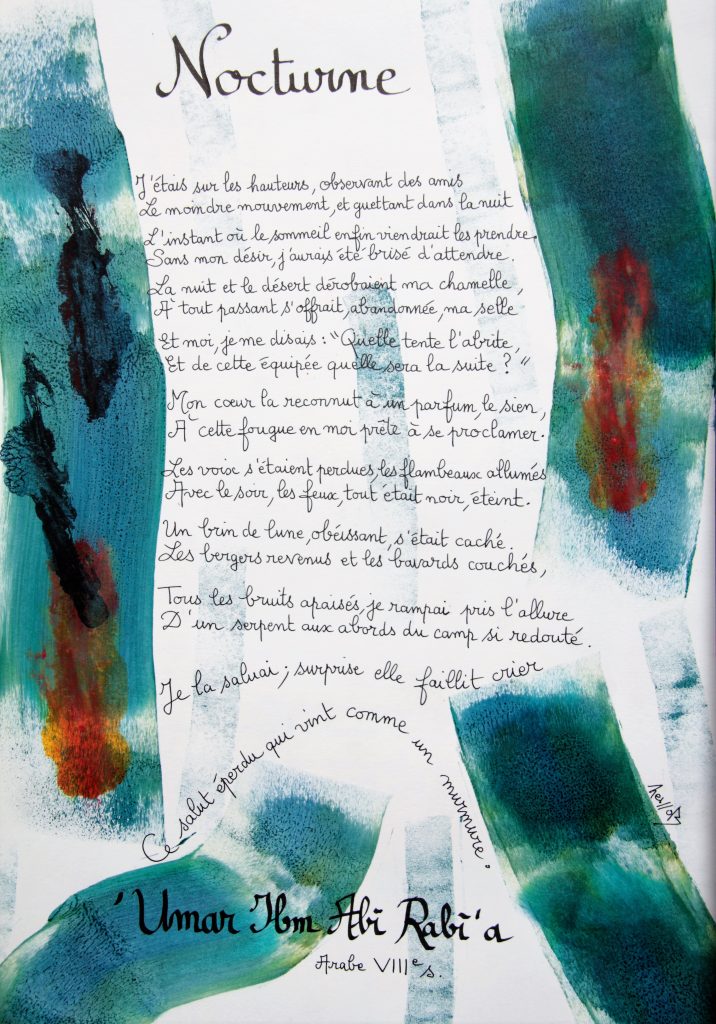 Nocturne
J'étais sur les hauteurs, observant des amis
Le moindre mouvement, et guettant dans la nuit
L'instant où le sommeil enfin viendrait les prendre.
Sans mon désir, j'aurais été brisé d'attendre.
La nuit et le désert dérobaient ma chamelle,
À tout passant s'offrait, abandonnée, ma selle
Et moi, je me disais : "Quelle tente l'abrite,
Et de cette équipée quelle sera la suite ?"
Mon cœur la reconnut à un parfum, le sien,
À cette fougue en moi prête à se proclamer.
Les voix s'étaient perdues, les flambeaux allumés
Avec le soir, les feux, tout était noir, éteint.
Un brin de lune, obéissant, s'était caché.
Les bergers revenus et les bavards couchés,
Tous les bruits apaisés, je rampai pris l'allure
D'un serpent aux abords du camp si redouté.
Je la saluai ; surprise elle faillit crier
Ce salut éperdu qui vint comme un murmure.
'Umar Ibm Abî Rabî'a
Arabe VIIIe s.